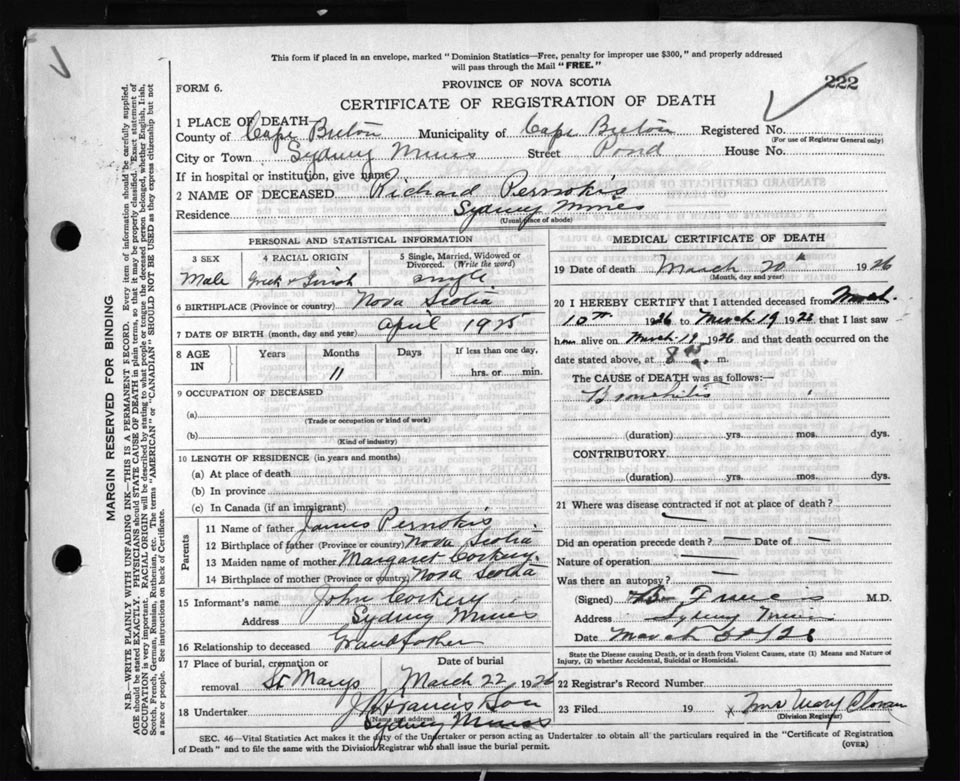 This form if placed in an envelope, marked "Dominion Statistics—Free, penalty for improper use $300," and properly addressed
will pass through the Mail "FREE."
FORM 6.
PROVINCE OF NOVA SCOTIA
222
CERTIFICATE OF REGISTRATION OF DEATH
1 PLACE OF DEATH
County of Cape Breton Municipality of Cape Breton Registered No.
(For use of Registrar General only)
City or Town Sydney Mines Street Pond House No.
If in hospital or institution, give name
2 NAME OF DECEASED Richard Pernokis
Residence Sydney Mines
(Usual place of abode)
PERSONAL AND STATISTICAL INFORMATION
3 SEX 4 RACIAL ORIGIN 5 Single, Married, Widowed or Divorced. (Write the word)
Male Greek & Irish single
6 BIRTHPLACE (Province or country) Nova Scotia
7 DATE OF BIRTH (month, day and year) April 1925
8 AGE IN Years Months Days If less than one day,
11 hrs. or min.
9 OCCUPATION OF DECEASED
(a)
(Trade or occupation or kind of work)
(b)
(Kind of industry)
10 LENGTH OF RESIDENCE (in years and months)
(a) At place of death
(b) In province
(c) In Canada (if an immigrant)
Parents
11 Name of father James Pernokis
12 Birthplace of father (Province or country) Nova Scotia
13 Maiden name of mother Margaret Corkery
14 Birthplace of mother (Province or country) Nova Scotia
15 Informant's name John Corkery
Address Sydney Mines
16 Relationship to deceased Grandfather
17 Place of burial, cremation or removal St Marys Date of burial March 22 1926
18 Undertaker J Francis Son
(Name and address)
Sydney Mines
MEDICAL CERTIFICATE OF DEATH
19 Date of death March 20th 1926
(Month, day and year)
20 I HEREBY CERTIFY that I attended deceased from March
10th 1926 to March 19 1926 that I last saw
him alive on March 19 1926 and that death occurred on the
date stated above, at 8 m.
The CAUSE of DEATH was as follows:—
Bronchitis
(duration) yrs. mos. dys.
CONTRIBUTORY
(duration) yrs. mos. dys.
21 Where was disease contracted if not at place of death?
Did an operation precede death? — Date of —
Nature of operation —
Was there an autopsy? —
(Signed) Francis M.D.
Address Sydney Mines
Date March 20/26
State the Disease causing Death, or in death from Violent Causes, state (1) Means and Nature of Injury, (2) whether Accidental, Suicidal or Homicidal.
22 Registrar's Record Number
23 Filed 19 x Mrs Mary Cloran
(Division Registrar)
SEC. 46—Vital Statistics Act makes it the duty of the Undertaker or person acting as Undertaker to obtain all the particulars required in the "Certificate of Registration
of Death" and to file the same with the Division Registrar who shall issue the burial permit.
(OVER)
MARGIN RESERVED FOR BINDING
N.B.—WRITE PLAINLY WITH UNFADING INK—THIS IS A PERMANENT RECORD. Every item of information should be carefully supplied.
AGE should be stated EXACTLY. PHYSICIANS should STATE CAUSE OF DEATH in plain terms, so that it may be properly classified. Exact statement of
OCCUPATION is very important. RACIAL ORIGIN will be described by stating to what people or tongue the deceased person belonged, whether English, Irish,
Scotch, French, German, Russian, Ruthenian, etc. The terms "AMERICAN" or "CANADIAN" SHOULD NOT BE USED as they express citizenship but not
a race or people. See instructions on back of Certificate.